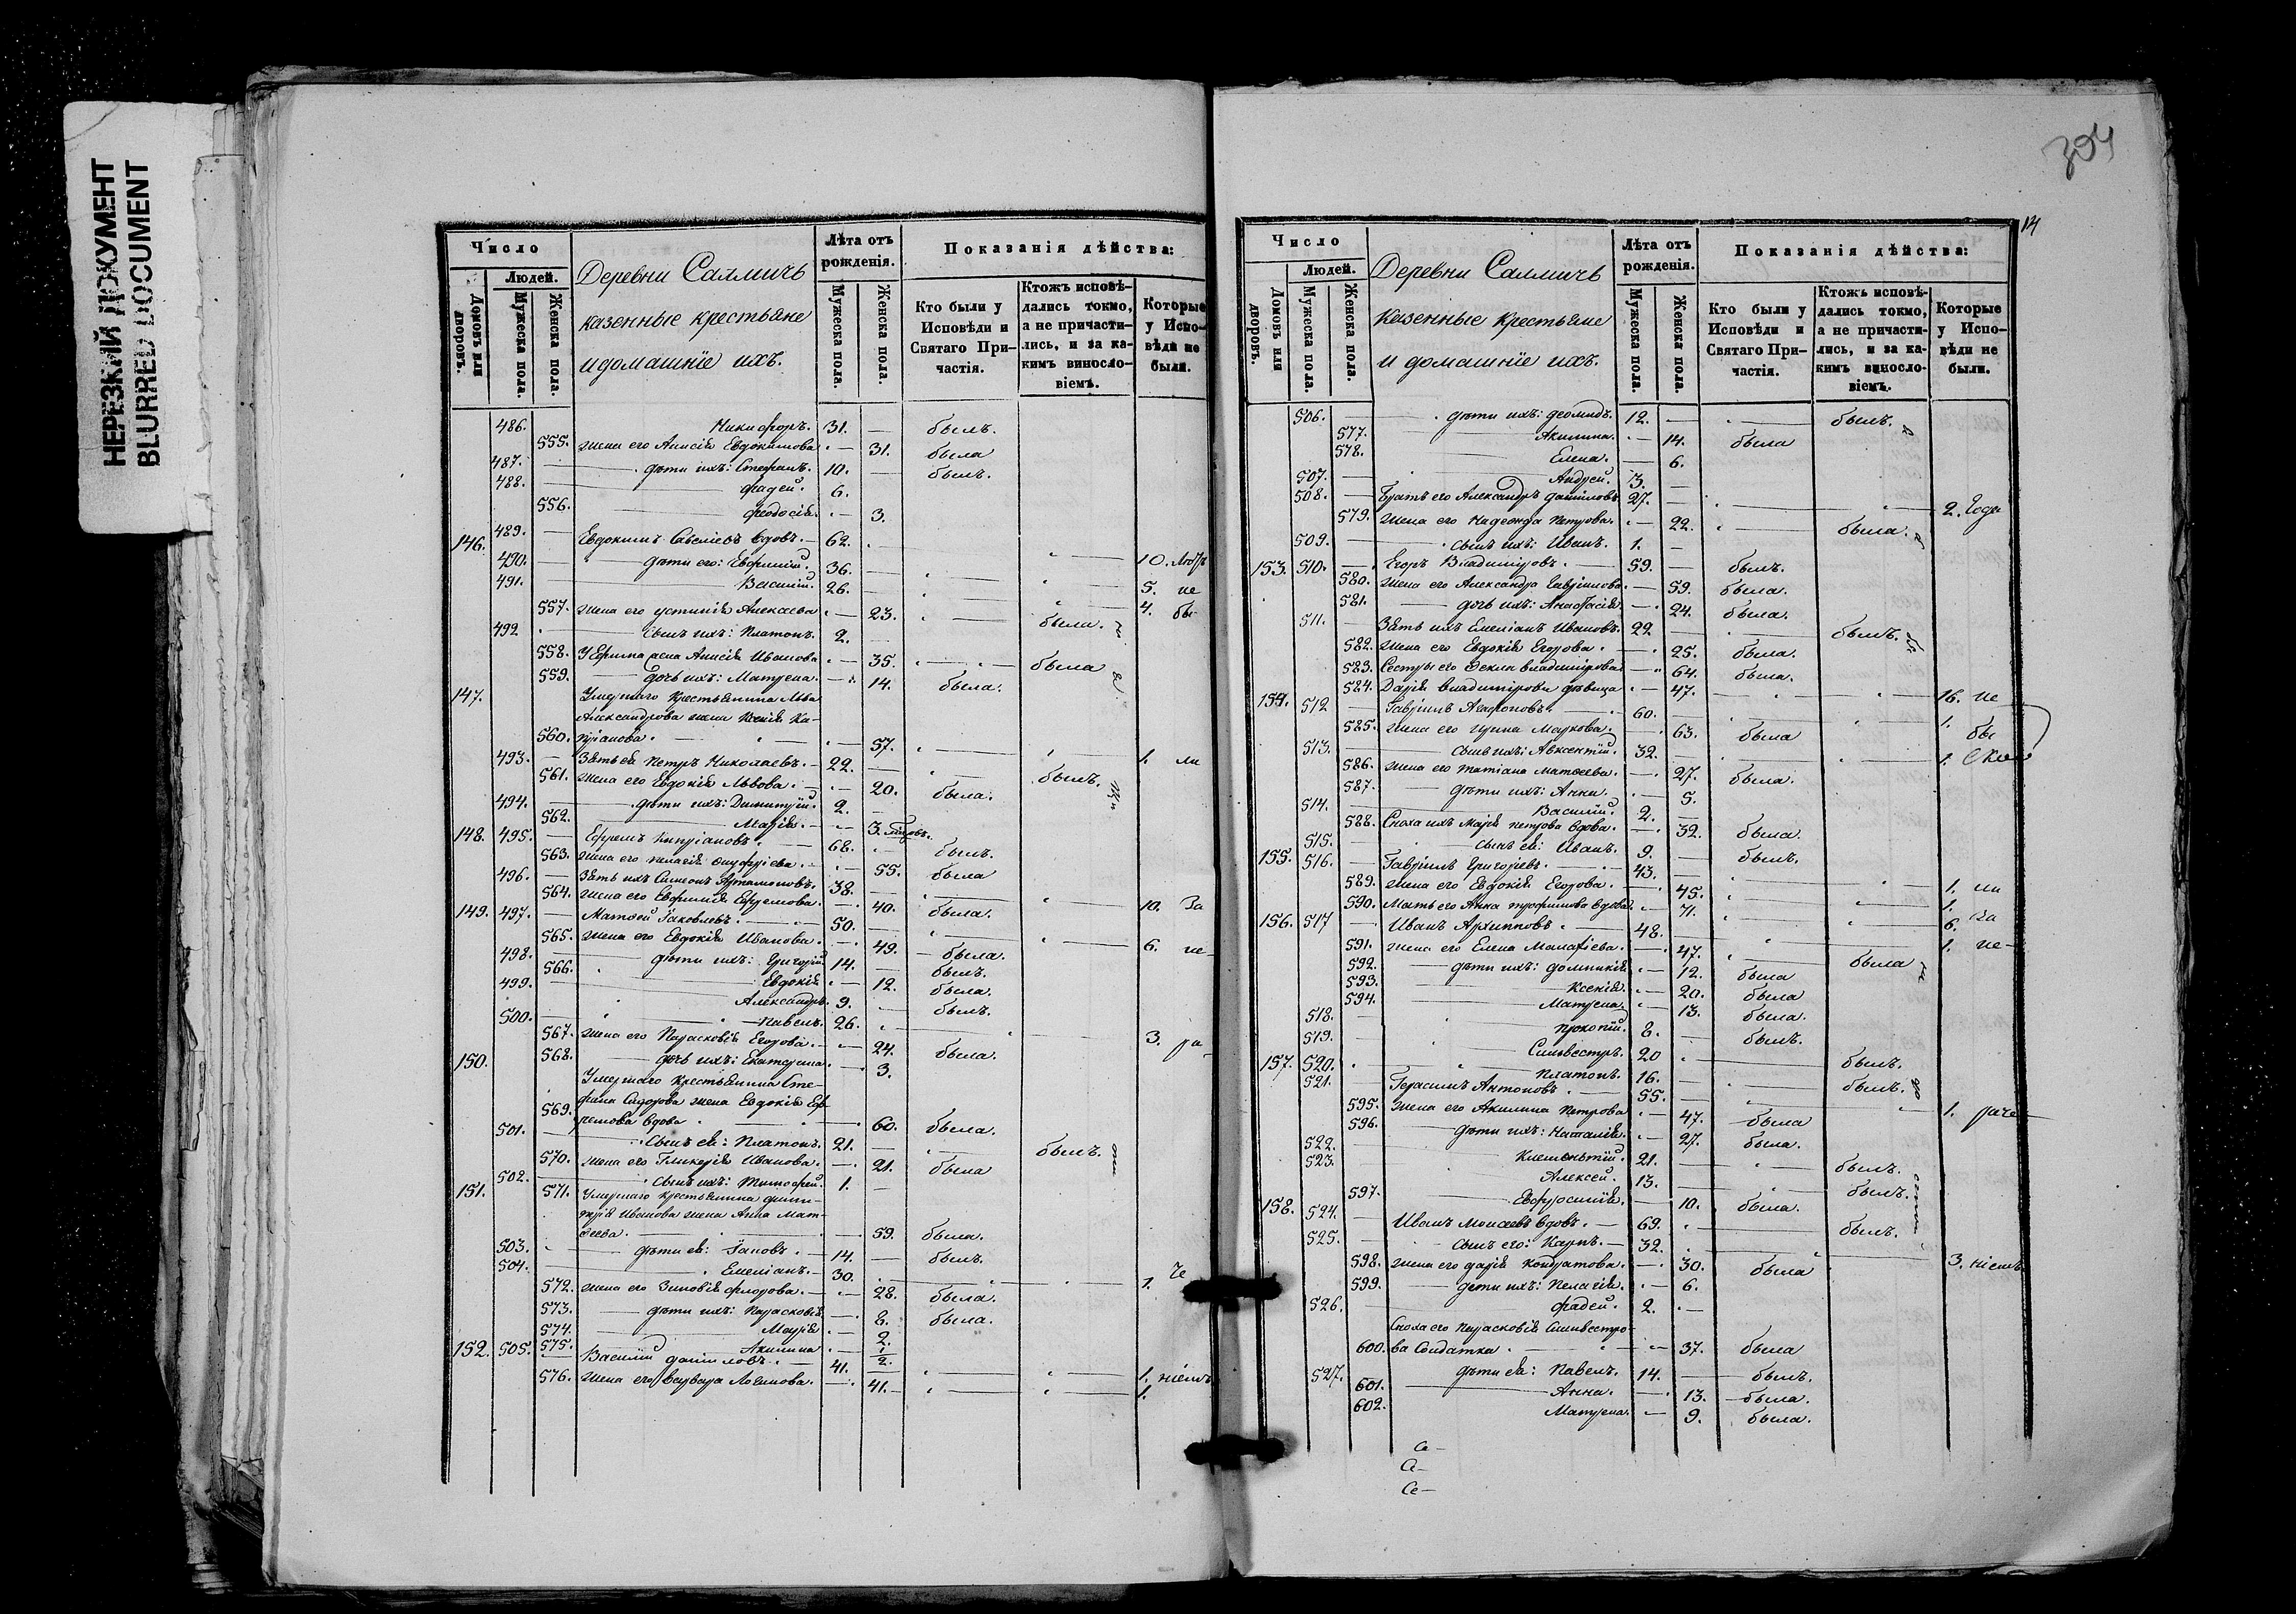 НЕРЕЗКИЙ ДОКУМЕНТ
BLURRED DOCUMENT
Число
Людей.
Домовъ или дворовъ.
Мужеска пола.
Женска пола.
Деревни Саллтичь
казенные крестьяне
и домашніе ихъ.
Лѣта отъ рожденія.
Мужеска пола.
Женска пола.
Показанія дѣйства:
Кто были у Исповѣди и Святаго Причастія.
Ктожъ исповѣдались токмо, а не причастились, и за какимъ винословіемъ.
Которые у Исповѣди не были.
486. Никифоръ. 31. — былъ.
555. жена его Анисія Евдокимова — 31. была
487. дѣти ихъ: Стефанъ. 10. — былъ.
488. Фадей. 6.
556. Феодосія. — 3.
146. 489. Евдокимъ Савеліевъ вдовъ. — 62. 10.
490. дѣти его: Ефимій. 36. — 5. не
491. Василій. 26. — 4. бы
557. жена его Устинія Алексѣева — 23. была.
492 сынъ ихъ: Платонъ. 2.
558. У Ефима жена Анисія Иванова — 35. была
559. дочь ихъ: Матрена. — 14. была.
147. Умершаго крестьянина Льва
Александрова жена Ксенія Ки-
560. пріанова. — 57. 1. ли
493. Зять ея Петръ Николаевъ. — 22. былъ.
561. жена его Евдокія Львова. — 20. была.
494. дѣти ихъ: Димитрій. 2.
562. Марія. — 3.
148. 495. Ефремъ Кипріановъ. 68. былъ.
563. жена его Пелагія Онуфріева. — 55. была
496. Зять ихъ Симеонъ Артамоновъ. 38. 10. За
564. жена его Евфимія Ефремова. — 40. была.
149. 497. Матѳей Іаковлевъ. 50. 6. не
565. жена его Евдокія Иванова. — 49. — была.
498. дѣти ихъ: Григорій. 14. — былъ.
566. Евдокія — 12. была.
499. Александръ. 9. былъ.
500. Павелъ. 26. 3. ра-
567. жена его Парасковія Егорова. — 24. была.
568. дочь ихъ: Екатерина. — 3.
150. Умершаго крестьянина Сте-
фана Сидорова жена Евдокія Еф-
569. ремова вдова — 60. была.
501. Сынъ ея: Платонъ. 21. — былъ.
570. жена его Гликерія Иванова. — 21. была
502. сынъ ихъ: Тимофей. 1.
151. 571. Умершаго крестьянина Дими-
трія Иванова жена Анна Мат-
ѳеева. — 59. была.
503. дѣти ея: Іаковъ. — 14. — былъ.
504. Емеліанъ. — 30. 1. Че
572. жена его Зиновія Флорова. — 28. была.
573. дѣти ихъ: Парасковія — 8. была.
574. Марія — 2.
575. Акилина — 1/2.
152. 505. Василій Даниловъ. — 41. 1. ніемъ
576. жена его Варвара Логинова. — 41. — 1.
304
14
Число
Людей.
Домовъ или дворовъ.
Мужеска пола.
Женска пола.
Деревни Саллтичь
казенные крестьяне
и домашніе ихъ.
Лѣта отъ рожденія.
Мужеска пола.
Женска пола.
Показанія дѣйства:
Кто были у Исповѣди и Святаго Причастія.
Ктожъ исповѣдались токмо, а не причастились, и за какимъ винословіемъ.
Которые у Исповѣди не были.
506. дѣти ихъ: Деомидъ. 12. — былъ.
577. Акилина. — 14. была
578. Елена. — 6.
507. Андрей. 3. —
508. Братъ его Александръ Даниловъ 27. — 2. года
579. жена его Надежда Петрова. — 22. была.
509. сынъ ихъ: Иванъ. 1. —
153. 510. Егоръ Владиміровъ. 59. — былъ.
580. жена его Александра Гавріилова — 59. была.
581. дочь ихъ: Анастасія — 24. была.
511. Зять ихъ Емеліанъ Ивановъ. 22 былъ.
582. жена его Евдокія Егорова. — 25. была.
583. Сестры его Ѳекла Владимірова — 64. была.
584. Дарія Владимірова дѣвица — 47. 16. не
154. 512 Гавріилъ Агафоновъ. 60. 1. бы
585. жена его Ирина Маркова. — 63. была
513. сынъ ихъ: Авксентій. 32. 1.
586. жена его Татіана Матѳеева. — 27. была.
587. дѣти ихъ: Анна. — 5.
514. Василій. 2. —
588. Сноха ихъ Марія Петрова вдова. — 32. была.
515. сынъ ея: Иванъ. 9. — былъ.
155. 516. Гавріилъ Григоріевъ. 43. 1. ли
589. жена его Евдокія Егорова. — 45. 1.
590. Мать его Анна Трофимова вдова. — 71. 6. за
156. 517 Иванъ Архиповъ. 48. 1. не-
591. жена его Елена Малафіева. — 47. была
592. дѣти ихъ: Домникія — 12. была
593. Ксенія. — 20. была
594. Матрена. — 13. была.
518. Прокопій. 8. — былъ.
519. Сильвестръ. 20 былъ.
520. Платонъ. 16. былъ.
157. 521. Герасимъ Антоновъ. 55. 1. раче
595. жена его Акилина Петрова — 47. была
596. дѣти ихъ: Наталія. — 27. была.
522. Климентій. 21. былъ.
523. Алексей. 13. былъ.
597. Евфросинія. — 10. была.
158. 524. Иванъ Моисеевъ вдовъ. — 69. былъ.
525. сынъ его: Карпъ. — 32. 3. ніемъ
598. жена его Дарія Кондратова. — 30. была
599. дѣти ихъ: Пелагія. — 6.
526. Фадей. 2. —
Сноха его Парасковія Сильвестро-
600. ва Солдатка. — 37. была
527. дѣти ея: Павелъ. 14. былъ.
601. Анна. — 13. была.
602. Матрена. — 9. была.
Се—
Се—
Се—